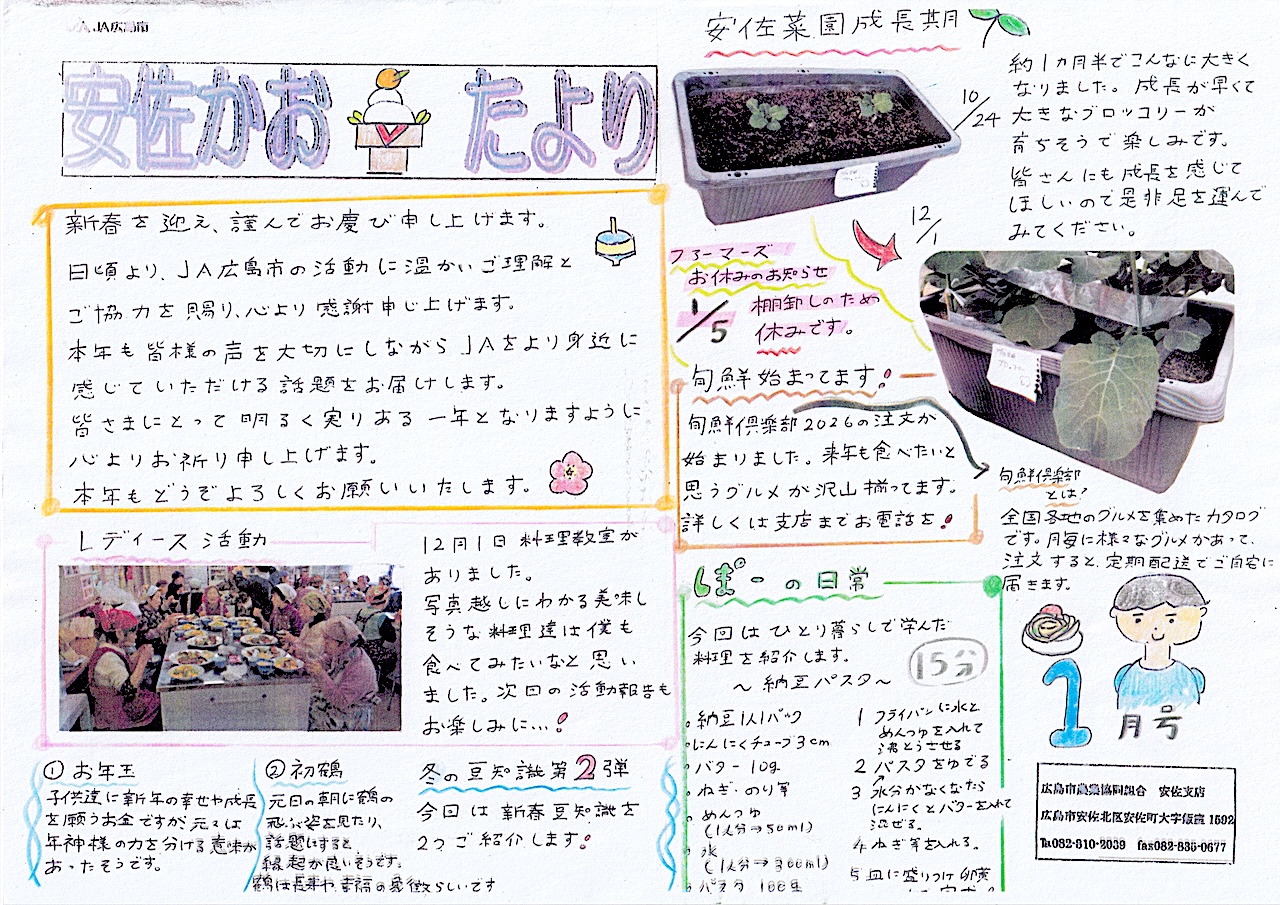 JA広島市
安佐かお たより
新春を迎え、謹んでお慶び申し上げます。
日頃より、JA広島市の活動に温かいご理解と
ご協力を賜り、心より感謝申し上げます。
本年も皆様の声を大切にしながらJAをより身近に
感じていただける話題をお届けします。
皆さまにとって明るく実りある一年となりますように
心よりお祈り申し上げます。
本年もどうぞよろしくお願いいたします。
レディース活動
12月1日料理教室が
ありました。
写真越しにわかる美味し
そうな料理達は僕も
食べてみたいなと思い
ました。次回の活動報告も
お楽しみに…!
冬の豆知識第2弾
今回は新春豆知識を
2つご紹介します!
① お年玉
子供達に新年の幸せや成長
を願うお金ですが元々は
年神様の力を分ける意味が
あったそうです。
② 初鶴
元日の朝に鶴の
飛ぶ姿を見たり、
話題にすると
縁起が良いそうです。
鶴は長寿や幸福の象徴らしいです
安佐菜園成長期
10/24
約1ヵ月半でこんなに大きく
なりました。成長が早くて
大きなブロッコリーが
育ちそうで楽しみです。
皆さんにも成長を感じて
ほしいので是非足を運んで
みてください。
12/1
ファーマーズ
お休みのお知らせ
1/5 棚卸しのため
休みです。
旬鮮始まってます!
旬鮮倶楽部2026の注文が
始まりました。来年も食べたいと
思うグルメが沢山揃ってます。
詳しくは支店までお電話を!
旬鮮倶楽部
とは?
全国各地のグルメを集めたカタログ
です。月毎に様々なグルメがあって、
注文すると、定期配送でご自宅に
届きます。
ぽーの日常
今回はひとり暮らしで学んだ
料理を紹介します。
15分
～納豆パスタ～
。納豆1人1パック
。にんにくチューブ3cm
。バター 10g
。ねぎ・のり等
。めんつゆ
(1人分⇒50ml)
。水
(1人分⇒300ml)
。パスタ 100g
1 フライパンに水と
めんつゆを入れて
沸とうさせる
2 パスタをゆでる
3 水分がなくなたら
にんにくとバターを入れて
混ぜる。
4 ねぎ等を入れる。
5 皿に盛りつけ卵黄
1
月号
広島市農業協同組合 安佐支店
広島市安佐北区安佐町大字飯室 1592